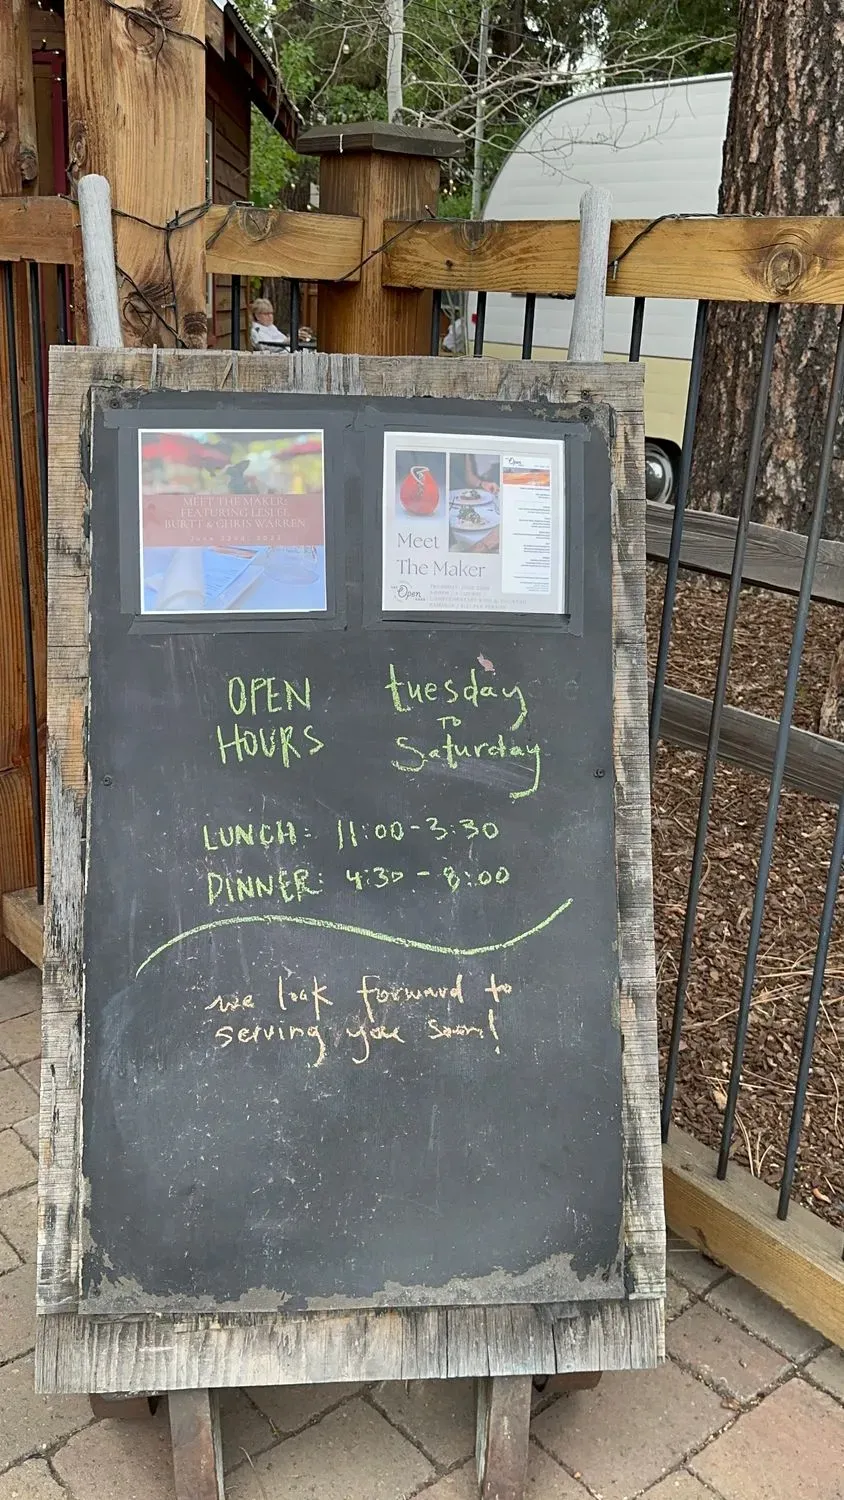 MEET THE MAKER:
FEATURING LESLEE
BURTT & CHRIS WARREN
Meet
The Maker
THE
Open
Open
OPEN
HOURS
tuesday
TO
saturday
LUNCH: 11:00-3:30
DINNER: 4:30-8:00
we look forward to
serving you soon!